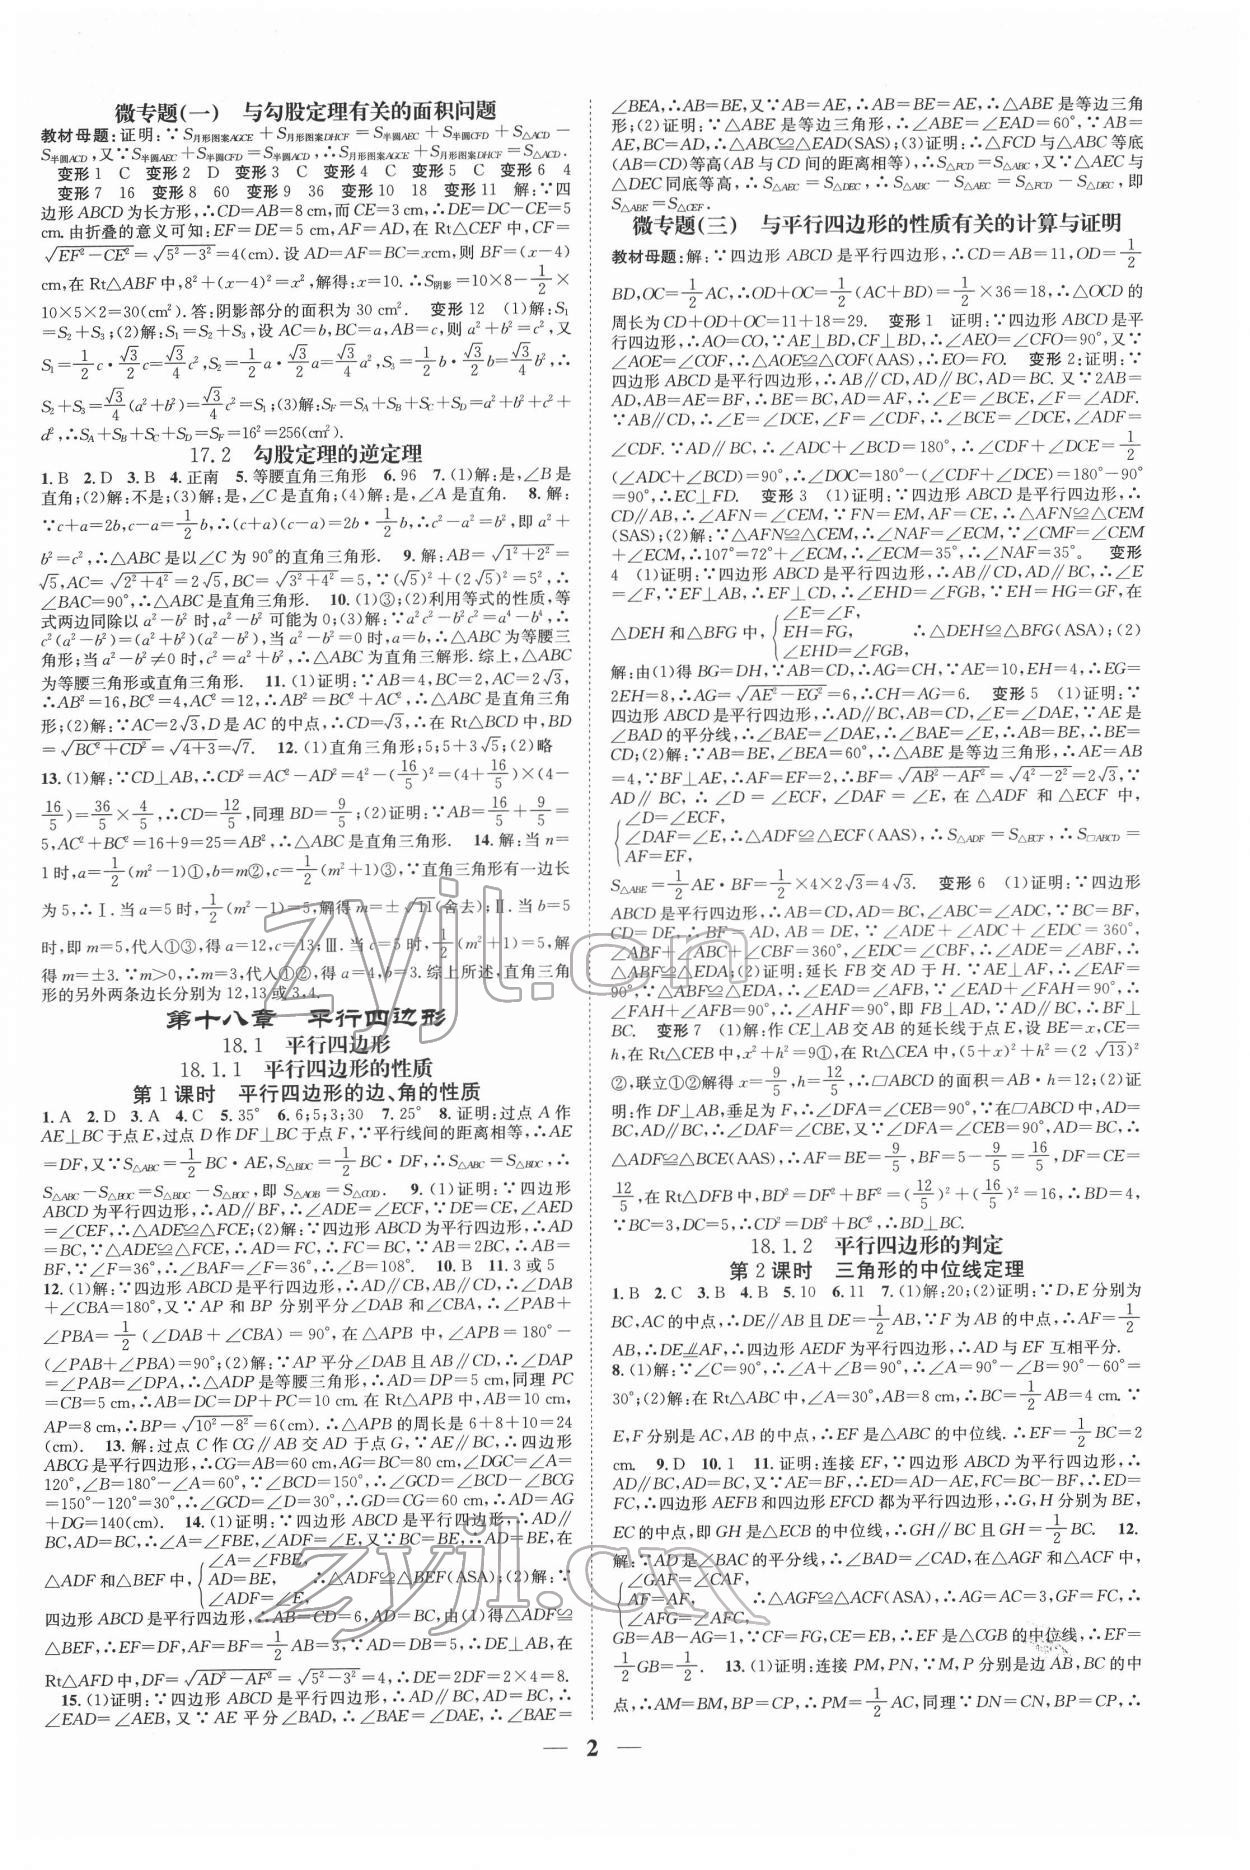 微专题(一) 与勾股定理有关的面积问题
教材母题:证明:∵S月形图案AGCE+S月形图案DHCF=S半圆AEC+S半圆CFD+S△ACD-
S半圆ACD,又∵S半圆AEC+S半圆CFD=S半圆ACD,∴S月形图案AGCE+S月形图案DHCF=S△ACD.
变形1 C 变形2 D 变形3 C 变形4 C 变形5 C 变形6 4
变形7 16 变形8 60 变形9 36 变形10 18 变形11 解:∵四
边形ABCD为长方形,∴CD=AB=8 cm,而CE=3 cm,∴DE=DC-CE=5
cm.由折叠的意义可知:EF=DE=5 cm,AF=AD,在Rt△CEF中,CF=
√(EF²-CE²)=√(5²-3²)=4(cm).设AD=AF=BC=xcm,则BF=(x-4)
cm,在Rt△ABF中,8²+(x-4)²=x²,解得:x=10.∴S阴影=10×8-1/2×
10×5×2=30(cm²).答:阴影部分的面积为30 cm². 变形12 (1)解:S₁
=S₂+S₃;(2)解:S₁=S₂+S₃,设AC=b,BC=a,AB=c,则a²+b²=c²,又
S₁=1/2c·√3/2c=√3/4c²,S₂=1/2a·√3/2a=√3/4a²,S₃=1/2b·√3/2b=√3/4b²,∴
S₂+S₃=√3/4(a²+b²)=√3/4c²=S₁;(3)解:S_F=S_A+S_B+S_C+S_D=a²+b²+c²+
d²,∴S_A+S_B+S_C+S_D=S_F=16²=256(cm²).
17.2 勾股定理的逆定理
1.B 2.D 3.B 4.正南 5.等腰直角三角形 6.96 7.(1)解:是,∠B是
直角;(2)解:不是;(3)解:是,∠C是直角;(4)解:是,∠A是直角. 8.解:
∵c+a=2b,c-a=1/2b,∴(c+a)(c-a)=2b·1/2b,∴c²-a²=b²,即a²+
b²=c²,∴△ABC是以∠C为90°的直角三角形. 9.解:AB=√(1²+2²)=
√5,AC=√(2²+4²)=2√5,BC=√(3²+4²)=5,∵(√5)²+(2√5)²=5²,∴
∠BAC=90°,∴△ABC是直角三角形. 10.(1)③;(2)利用等式的性质,等
式两边同除以a²-b²时,a²-b²可能为0;(3)解:∵a²c²-b²c²=a⁴-b⁴,∴
c²(a²-b²)=(a²+b²)(a²-b²),当a²-b²=0时,a=b,∴△ABC为等腰三
角形;当a²-b²≠0时,c²=a²+b²,∴△ABC为直角三解形.综上,△ABC
为等腰三角形或直角三角形. 11.(1)证明:∵AB=4,BC=2,AC=2√3,
∴AB²=16,BC²=4,AC²=12,∴AB²=BC²+AC²,∴△ABC是直角三角
形;(2)解:∵AC=2√3,D是AC的中点,∴CD=√3,∴在Rt△BCD中,BD
=√(BC²+CD²)=√(4+3)=√7. 12.(1)直角三角形;5;5+3√5;(2)略
13.(1)解:∵CD⊥AB,∴CD²=AC²-AD²=4²-(16/5)²=(4+16/5)×(4-
16/5)=36/5×4/5,∴CD=12/5,同理BD=9/5;(2)证明:∵AB=16/5+9/5=
5,AC²+BC²=16+9=25=AB²,∴△ABC是直角三角形. 14.解:当n=
1时,a=1/2(m²-1)①,b=m②,c=1/2(m²+1)③,∵直角三角形有一边长
为5,∴Ⅰ.当a=5时,1/2(m²-1)=5,解得m=±√11(舍去);Ⅱ.当b=5
时,即m=5,代人①③,得a=12,c=13;Ⅲ.当c=5时,1/2(m²+1)=5,解
得m=±3.∵m>0,∴m=3,代人①②,得a=4,b=3.综上所述,直角三角
形的另外两条边长分别为12,13或3,4.
第十八章 平行四边形
18.1 平行四边形
18.1.1 平行四边形的性质
第1课时 平行四边形的边、角的性质
1.A 2.D 3.A 4.C 5.35° 6.6;5;3;30 7.25° 8.证明:过点A作
AE⊥BC于点E,过点D作DF⊥BC于点F,∵平行线间的距离相等,∴AE
=DF,又∵S△ABC=1/2BC·AE,S△BDC=1/2BC·DF,∴S△ABC=S△BDC,∴
S△ABC-S△BOC=S△BDC-S△BOC,即S△AOB=S△COD. 9.(1)证明:∵四边形
ABCD为平行四边形,∴AD∥BF,∴∠ADE=∠ECF,∵DE=CE,∠AED
=∠CEF,∴△ADE≌△FCE;(2)解:∵四边形ABCD为平行四边形,∴AD
=BC,∵△ADE≌△FCE,∴AD=FC,∴FC=BC,∵AB=2BC,∴AB=
BF,∵∠F=36°,∴∠BAF=∠F=36°,∴∠B=108°. 10.B 11.3或5
12.(1)解:∵四边形ABCD是平行四边形,∴AD∥CB,AB∥CD,∴∠DAB
+∠CBA=180°,又∵AP和BP分别平分∠DAB和∠CBA,∴∠PAB+
∠PBA=1/2(∠DAB+∠CBA)=90°,在△APB中,∠APB=180°-
(∠PAB+∠PBA)=90°;(2)解:∵AP平分∠DAB且AB∥CD,∴∠DAP
=∠PAB=∠DPA,∴△ADP是等腰三角形,∴AD=DP=5 cm,同理PC
=CB=5 cm,∴AB=DC=DP+PC=10 cm.在Rt△APB中,AB=10 cm,
AP=8 cm,∴BP=√(10²-8²)=6(cm).∴△APB的周长是6+8+10=24
(cm). 13.解:过点C作CG∥AB交AD于点G,∵AE∥BC,∴四边形
ABCG是平行四边形,∴CG=AB=60 cm,AG=BC=80 cm,∠DGC=∠A=
120°,∠B=180°-∠A=60°,∵∠BCD=150°,∴∠GCD=∠BCD-∠BCG
=150°-120°=30°,∴∠GCD=∠D=30°,∴GD=CG=60 cm,∴AD=AG
+DG=140(cm). 14.(1)证明:∵四边形ABCD是平行四边形,∴AD∥
BC,AD=BC,∴∠A=∠FBE,∠ADF=∠E,又∵BC=BE,∴AD=BE,在
△ADF和△BEF中,{∠A=∠FBE, AD=BE, ∠ADF=∠E, ∴△ADF≌△BEF(ASA);(2)解:∵
四边形ABCD是平行四边形,∴AB=CD=6,AD=BC,由(1)得△ADF≌
△BEF,∴EF=DF,AF=BF=1/2AB=3,∵AD=DB=5,∴DE⊥AB,在
Rt△AFD中,DF=√(AD²-AF²)=√(5²-3²)=4,∴DE=2DF=2×4=8.
15.(1)证明:∵四边形ABCD是平行四边形,∴AD∥BC,AD=BC,∴
∠EAD=∠AEB,又∵AE平分∠BAD,∴∠BAE=∠DAE,∴∠BAE=
∠BEA,∴AB=BE,又∵AB=AE,∴AB=BE=AE,∴△ABE是等边三角
形;(2)证明:∵△ABE是等边三角形,∴∠ABE=∠EAD=60°,∵AB=
AE,BC=AD,∴△ABC≌△EAD(SAS);(3)证明:∵△FCD与△ABC等底
(AB=CD)等高(AB与CD间的距离相等),∴S△FCD=S△ABC,又∵△AEC与
△DEC同底等高,∴S△AEC=S△DEC,∴S△ABC-S△AEC=S△FCD-S△DEC,即
S△ABE=S△CEF.
微专题(三) 与平行四边形的性质有关的计算与证明
教材母题:解:∵四边形ABCD是平行四边形,∴CD=AB=11,OD=1/2
BD,OC=1/2AC,∴OD+OC=1/2(AC+BD)=1/2×36=18,∴△OCD的
周长为CD+OD+OC=11+18=29. 变形1 证明:∵四边形ABCD是平
行四边形,∴AO=CO,∵AE⊥BD,CF⊥BD,∴∠AEO=∠CFO=90°,又∵
∠AOE=∠COF,∴△AOE≌△COF(AAS),∴EO=FO. 变形2;证明:∵
四边形ABCD是平行四边形,∴AB∥CD,AD∥BC,AD=BC.又∵2AB=
AD,AB=AE=BF,∴BE=BC,AD=AF,∴∠E=∠BCE,∠F=∠ADF.
∵AB∥CD,∴∠E=∠DCE,∠F=∠CDF,∴∠BCE=∠DCE,∠ADF=
∠CDF.∵AD∥BC,∴∠ADC+∠BCD=180°,∴∠CDF+∠DCE=1/2
(∠ADC+∠BCD)=90°,∴∠DOC=180°-(∠CDF+∠DCE)=180°-90°
=90°,∴EC⊥FD. 变形3 (1)证明:∵四边形ABCD是平行四边形,∴
CD∥AB,∴∠AFN=∠CEM,∵FN=EM,AF=CE,∴△AFN≌△CEM
(SAS);(2)解:∵△AFN≌△CEM,∴∠NAF=∠ECM,∵∠CMF=∠CEM
+∠ECM,∴107°=72°+∠ECM,∴∠ECM=35°,∴∠NAF=35°。 变形
4 (1)证明:∵四边形ABCD是平行四边形,∴AB∥CD,AD∥BC,∴∠E
=∠F,∵EF⊥AB,∴EF⊥CD,∴∠EHD=∠FGB,∵EH=HG=GF,在
△DEH和△BFG中,{∠E=∠F, EH=FG, ∠EHD=∠FGB, ∴△DEH≌△BFG(ASA);(2)
解:由(1)得BG=DH,∵AB=CD,∴AG=CH,∵AE=10,EH=4,∴EG=
2EH=8,∴AG=√(AE²-EG²)=6,∴CH=AG=6. 变形5 (1)证明:∵
四边形ABCD是平行四边形,∴AD∥BC,AB=CD,∠E=∠DAE,∵AE是
∠BAD的平分线,∴∠BAE=∠DAE,∴∠BAE=∠E,∴AB=BE,∴BE=
CD;(2)解:∵AB=BE,∠BEA=60°,∴△ABE是等边三角形,∴AE=AB
=4,∵BF⊥AE,∴AF=EF=2,∴BF=√(AB²-AF²)=√(4²-2²)=2√3,∵
AD∥BC,∴∠D=∠ECF,∠DAF=∠E,在△ADF和△ECF中,
{∠D=∠ECF, ∠DAF=∠E, AF=EF, ∴△ADF≌△ECF(AAS),∴S△ADF=S△ECF,∴S□ABCD=
S△ABE=1/2AE·BF=1/2×4×2√3=4√3. 变形6 (1)证明:∵四边形
ABCD是平行四边形,∴AB=CD,AD=BC,∠ABC=∠ADC,∵BC=BF,
CD=DE,∴BF=AD,AB=DE,∵∠ADE+∠ADC+∠EDC=360°,
∠ABF+∠ABC+∠CBF=360°,∠EDC=∠CBF,∴∠ADE=∠ABF,∴
△ABF≌△EDA;(2)证明:延长FB交AD于H.∵AE⊥AF,∴∠EAF=
90°,∵△ABF≌△EDA,∴∠EAD=∠AFB,∵∠EAD+∠FAH=90°,∴
∠FAH+∠AFB=90°,∴∠AHF=90°,即FB⊥AD,∵AD∥BC,∴FB⊥
BC. 变形7 (1)解:作CE⊥AB交AB的延长线于点E,设BE=x,CE=
h,在Rt△CEB中,x²+h²=9①,在Rt△CEA中,(5+x)²+h²=(2√13)²
②,联立①②解得x=9/5,h=12/5,∴□ABCD的面积=AB·h=12;(2)证
明:作DF⊥AB,垂足为F,∴∠DFA=∠CEB=90°,∵在□ABCD中,AD=
BC,AD∥BC,∴∠DAF=∠CBE,又∵∠DFA=∠CEB=90°,AD=BC,∴
△ADF≌△BCE(AAS),∴AF=BE=9/5,BF=5-9/5=16/5,DF=CE=
12/5,在Rt△DFB中,BD²=DF²+BF²=(12/5)²+(16/5)²=16,∴BD=4,
∵BC=3,DC=5,∴CD²=DB²+BC²,∴BD⊥BC.
18.1.2 平行四边形的判定
第2课时 三角形的中位线定理
1.B 2.C 3.B 4.B 5.10 6.11 7.(1)解:20;(2)证明:∵D,E分别为
BC,AC的中点,∴DE∥AB且DE=1/2AB,∵F为AB的中点,∴AF=1/2
AB,∴DE⫽AF,∴四边形AEDF为平行四边形,∴AD与EF互相平分.
8.(1)解:∵∠C=90°,∴∠A+∠B=90°,∴∠A=90°-∠B=90°-60°=
30°;(2)解:在Rt△ABC中,∠A=30°,AB=8 cm,∴BC=1/2AB=4 cm.∵
E,F分别是AC,AB的中点,∴EF是△ABC的中位线.∴EF=1/2BC=2
cm. 9.D 10.1 11.证明:连接EF,∵四边形ABCD为平行四边形,∴
AD∥BC,AD=BC.又∵AE=BF,∴ED=AD-AE,FC=BC-BF,∴ED=
FC,∴四边形AEFB和四边形EFCD都为平行四边形,∴G,H分别为BE,
EC的中点,即GH是△ECB的中位线,∴GH∥BC且GH=1/2BC. 12.
解:∵AD是∠BAC的平分线,∴∠BAD=∠CAD,在△AGF和△ACF中
{∠GAF=∠CAF, AF=AF, ∠AFG=∠AFC, ∴△AGF≌△ACF(ASA),∴AG=AC=3,GF=FC,∴
GB=AB-AG=1,∵CF=FG,CE=EB,∴EF是△CGB的中位线,∴EF=
1/2GB=1/2. 13.(1)证明:连接PM,PN,∵M,P分别是边AB,BC的中
点,∴AM=BM,BP=CP,∴PM=1/2AC,同理∵DN=CN,BP=CP,∴
— 2 —
zyjl.cn
zyjl.cn